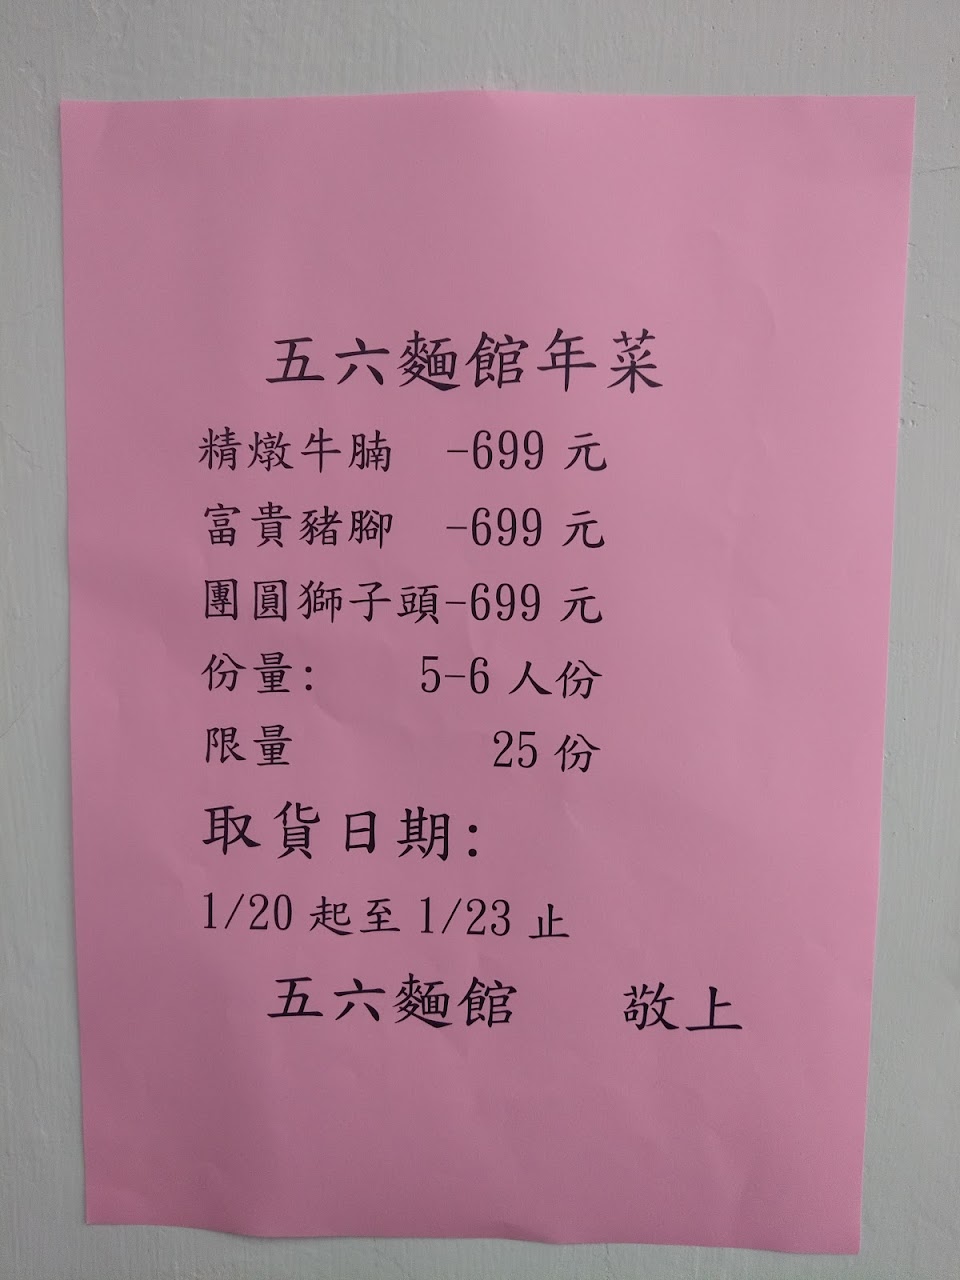 五六麵館年菜
精燉牛腩 -699元
富貴豬腳 -699元
團圓獅子頭-699元
份量: 5-6人份
限量 25份
取貨日期:
1/20起至1/23止
五六麵館 敬上